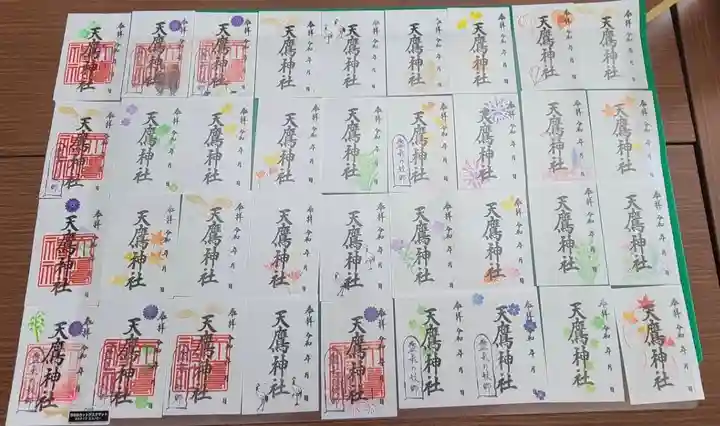 奉拝 令和 年 月 日
天鷹神社
奉拝 令和 年 月 日
天鷹神社
奉拝 令和 年 月 日
天鷹神社
奉拝 令和 年 月 日
天鷹神社
奉拝 令和 年 月 日
天鷹神社
奉拝 令和 年 月 日
天鷹神社
奉拝 令和 年 月 日
天鷹神社
奉拝 令和 年 月 日
天鷹神社
奉拝 令和 年 月 日
天鷹神社
奉拝 令和 年 月 日
天鷹神社
奉拝 令和 年 月 日
天鷹神社
奉拝 令和 年 月 日
天鷹神社
奉拝 令和 年 月 日
天鷹神社
奉拝 令和 年 月 日
天鷹神社
奉拝 令和 年 月 日
天鷹神社
奉拝 令和 年 月 日
天鷹神社
奉拝 令和 年 月 日
天鷹神社
奉拝 令和 年 月 日
天鷹神社
奉拝 令和 年 月 日
天鷹神社
奉拝 令和 年 月 日
天鷹神社
奉拝 令和 年 月 日
天鷹神社
奉拝 令和 年 月 日
天鷹神社
奉拝 令和 年 月 日
天鷹神社
奉拝 令和 年 月 日
天鷹神社
奉拝 令和 年 月 日
天鷹神社
奉拝 令和 年 月 日
天鷹神社
奉拝 令和 年 月 日
天鷹神社
奉拝 令和 年 月 日
天鷹神社
奉拝 令和 年 月 日
天鷹神社
奉拝 令和 年 月 日
天鷹神社
奉拝 令和 年 月 日
天鷹神社
奉拝 令和 年 月 日
天鷹神社
奉拝 令和 年 月 日
天鷹神社
奉拝 令和 年 月 日
天鷹神社
奉拝 令和 年 月 日
天鷹神社
奉拝 令和 年 月 日
天鷹神社